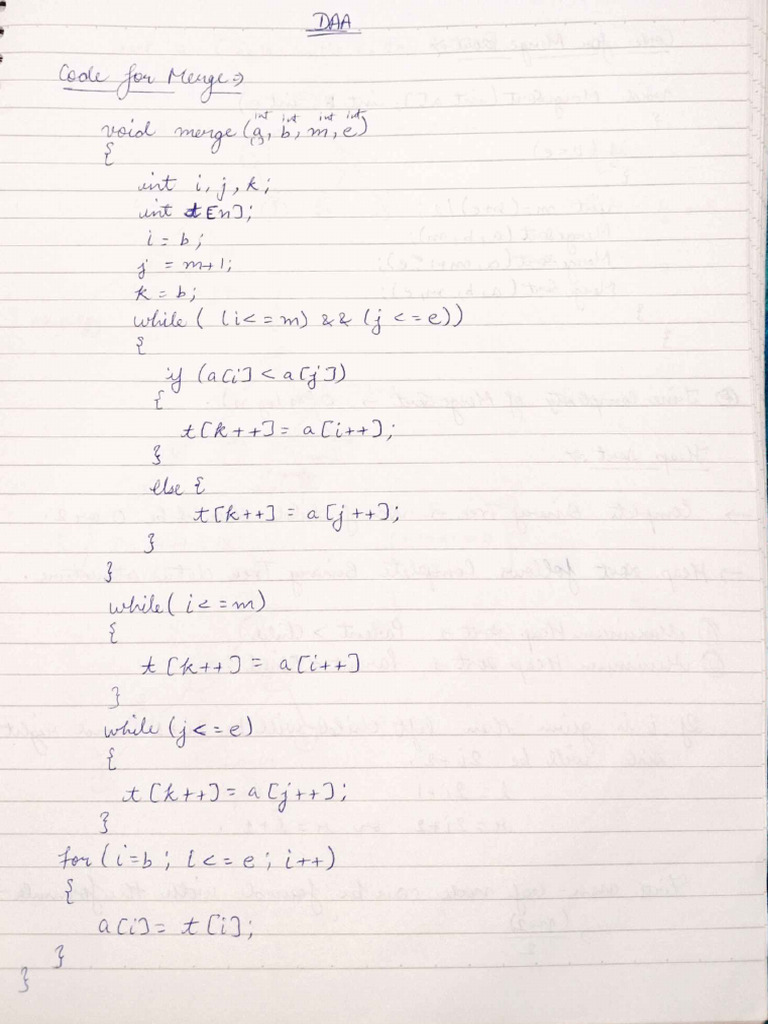 DAA
Code for Merge ⇒
int int int int
void merge (a, b, m, e)
[]
{
int i, j, k;
int t[n];
i = b;
j = m+1;
k = b;
while ( (i<=m) && (j <= e))
{
if (a[i] < a[j])
{
t[k++] = a[i++];
}
else {
t[k++] = a[j++];
}
}
while( i<=m)
{
t[k++] = a[i++]
}
while (j<=e)
{
t[k++] = a[j++];
}
for (i=b ; i<=e ; i++)
{
a[i] = t[i];
}
}